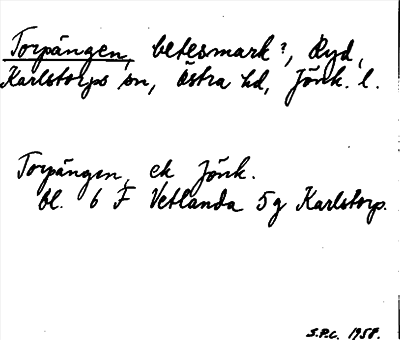 Torpängen, betesmark?, Ryd,
Karlstorps sn, Östra hd, Jönk. l.
Torpängen, ek Jönk.
bl. 6 F Vetlanda 5g Karlstorp.
S.P.C. 1958.